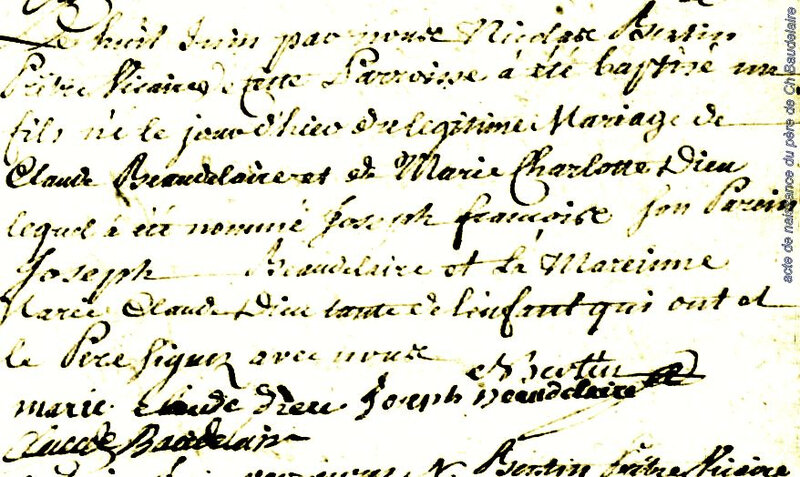 Le huit Juin par nous Nicolas Bertin
Prêtre Vicaire de cette Parroisse à été baptisé un
fils né le jour d'hier du legitime Mariage de
Claude Beaudelaire et de Marie Charlotte Dieu
lequel à été nommé Joseph françois son Parein
Joseph Beaudelaire et la Mareinne
Marie Claude Dieu tante de l'enfant qui ont et
le Pere signez avec nous N Bertin
marie claude dieu Joseph Beaudelaire
Claude Baudelair
N. Bertin Prêtre Vicaire
acte de naissance du père de Ch Baudelaire